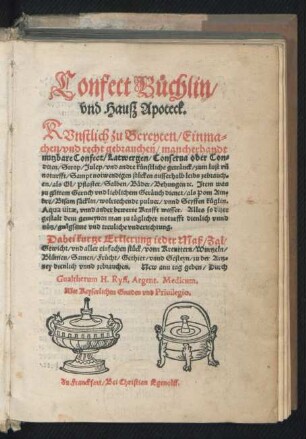 Confect Büchlin/
vnd Hauß Apoteck.
Künstlich zu Bereyten/ Einma-
chen/vnd recht gebrauchen/ mancherhandt
nutzbare Confect/ Latwergen/ Conserua oder Con-
diten/ Syrup/ Julep/ vnd andere künstliche getränck/ zum lust vñ
notturfft/ Sampt notwendigen stücken eusserlich leibs zebrauch-
en/ als Öl/ Pflaster/ Salben/ Bäder/ Behungen ꝛc. Item was
zu gůtem Geruch vnd lieblichem Geräuch dienet/ als Pom Am-
bre/ Bisem knöpff/ wolriechende puluer/ vnd Seyffen kůglen.
Aqua uitæ, vnnd ander bereyte krefft wasser. Alles so diser
gestalt dem gemeynen man zu täglicher notturfft dienlich vnnd
nütz/ gnůgsame vnd treuliche vnderrichtung.
Dabei kurtze Erklerung ieder Maß/ Zal/
Gewicht/ vnd aller einfachen stück/ von Kreutern/ Wurtzeln/
Blůmen/ Samen/ Frücht/ Gethier/ vnd Gesteyn/ zu der Artz-
ney dienlich vnnd zebrauchen. New am tag geben/ Durch
Gualtherum H. Ryff, Argent. Medicum.
Mit Keyserlichen Gnaden vnd Priuilegio.
Zu Franckfort/ Bei Christian Egenolff.